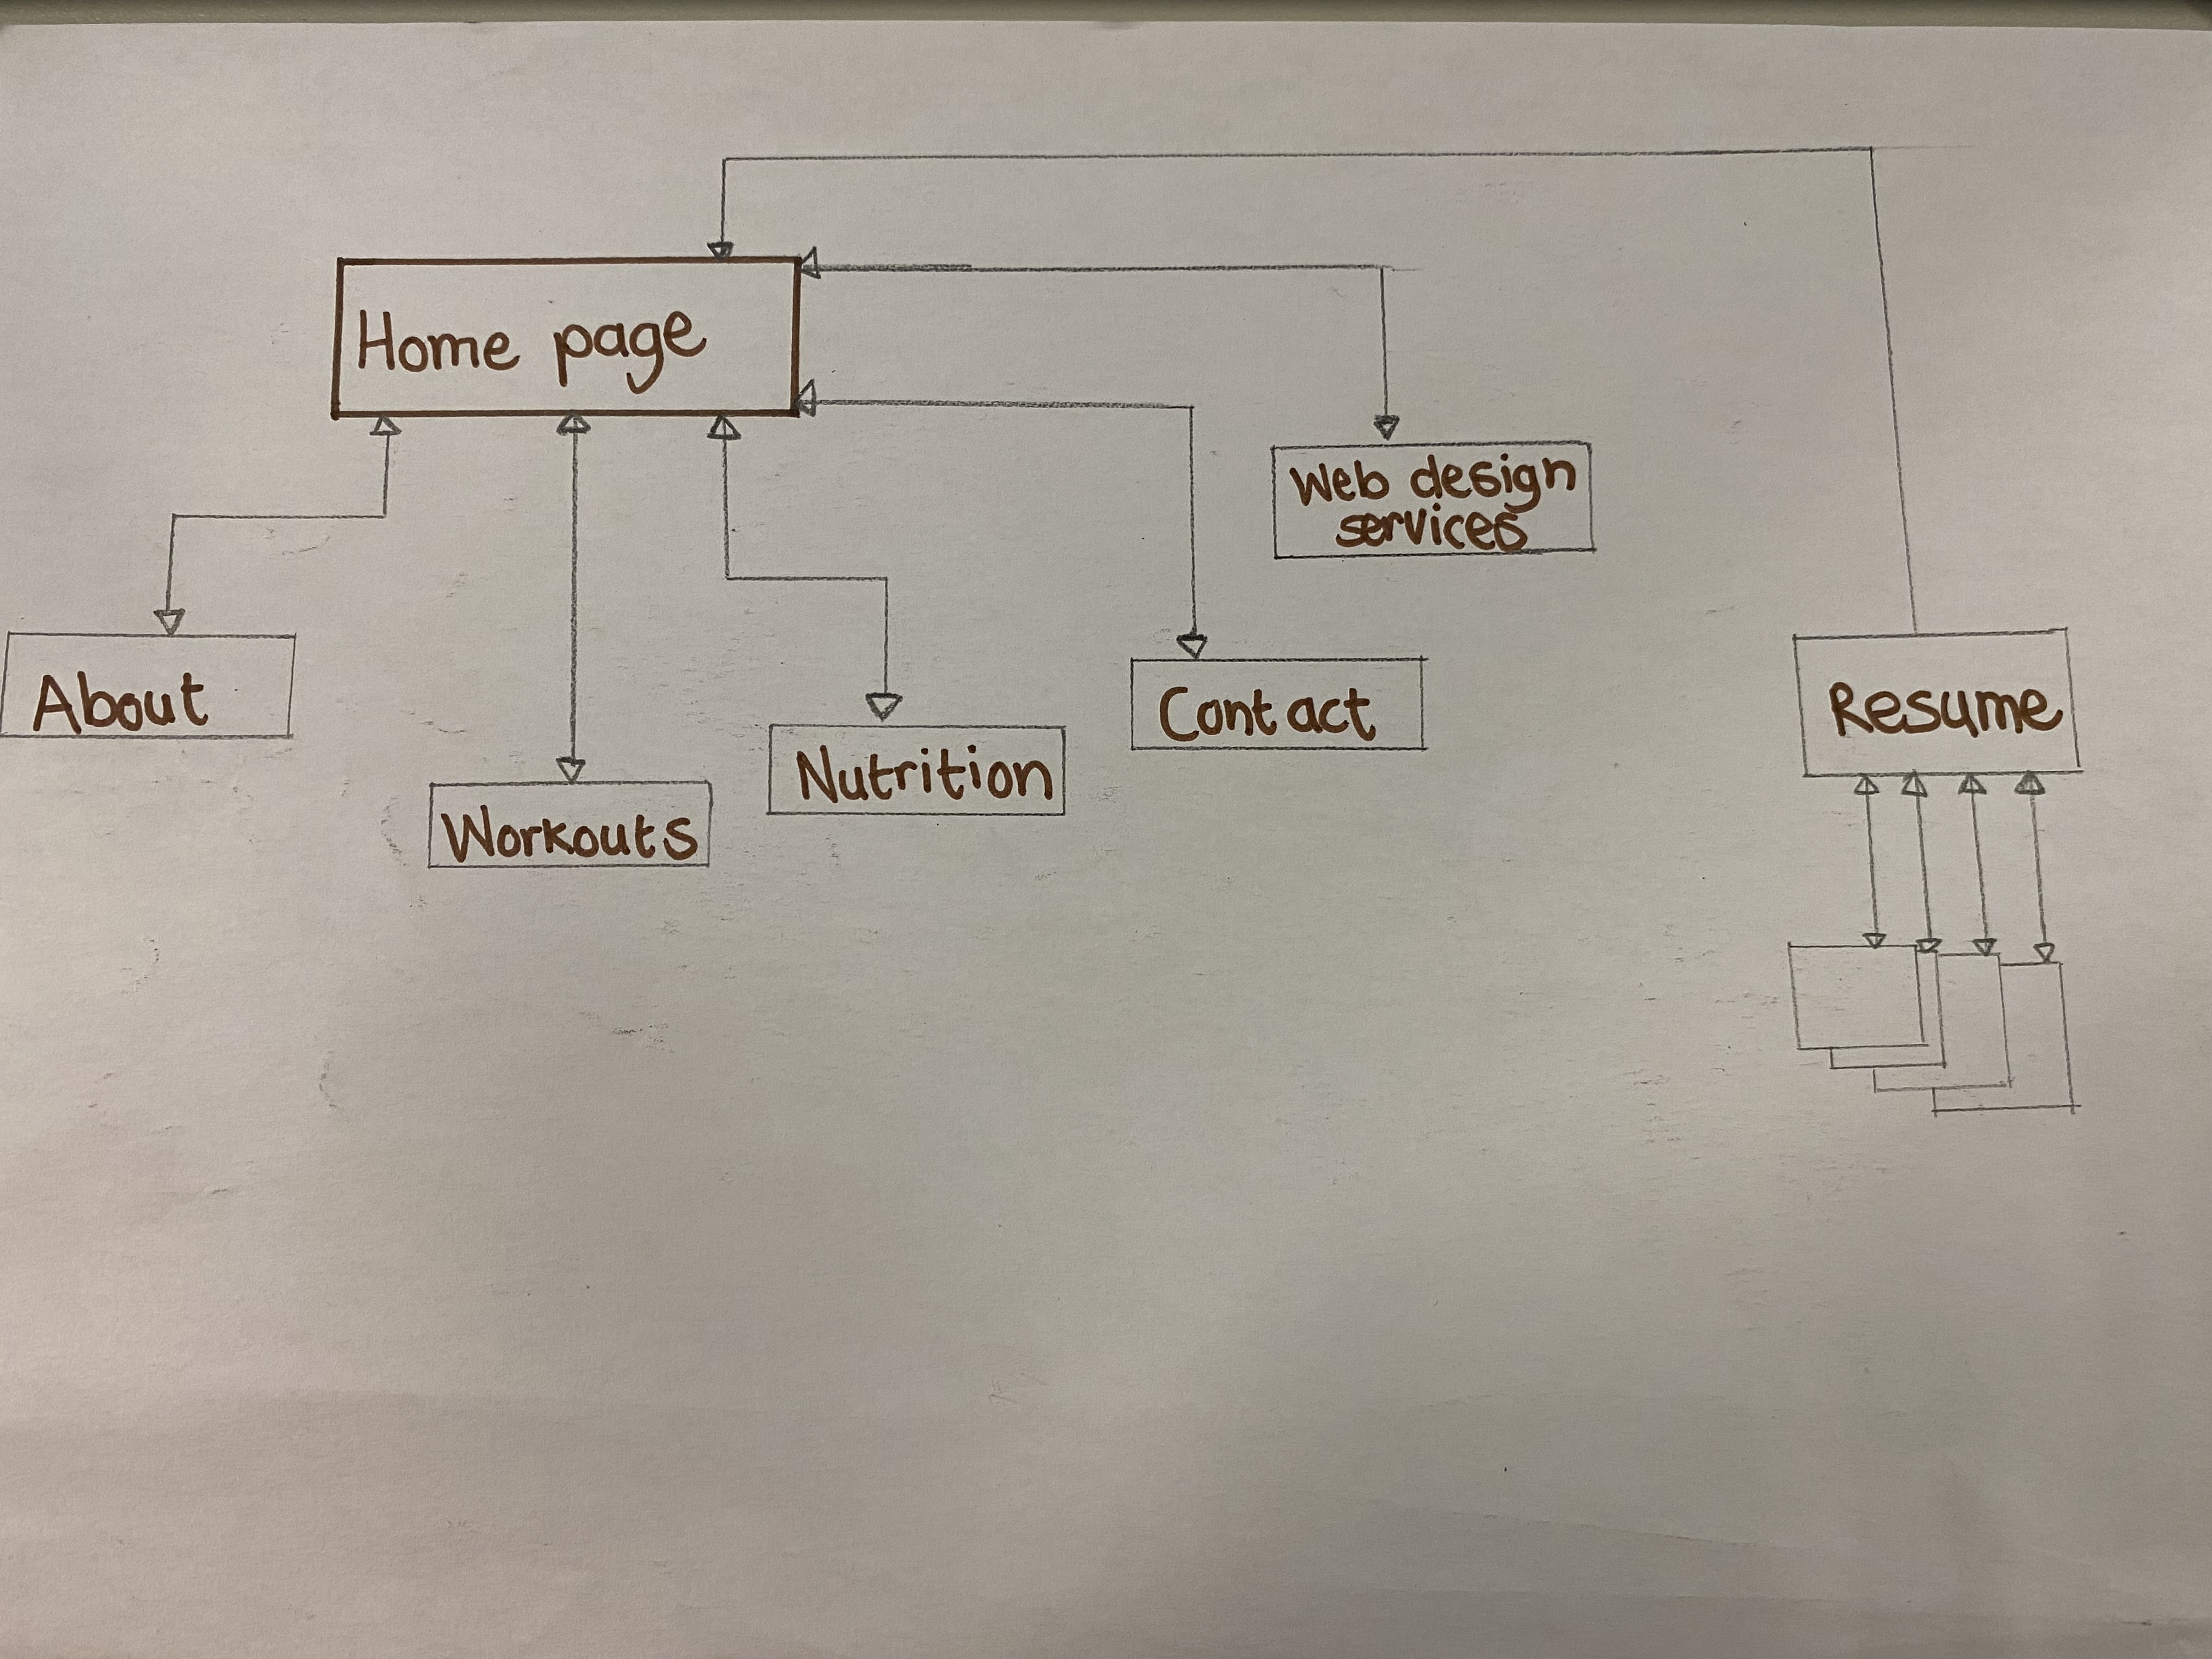 Home page
About
Workouts
Nutrition
Contact
Web design
services
Resume